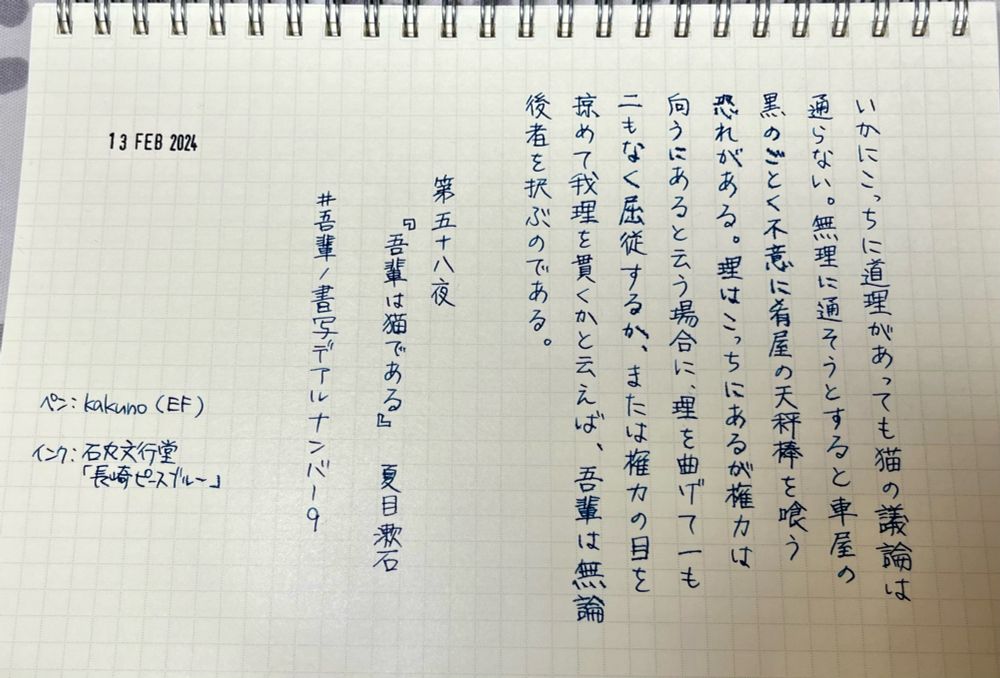 いかにこっちに道理があっても猫の議論は
通らない。無理に通そうとすると車屋の
黒のごとく不意に肴屋の天秤棒を喰う
恐れがある。理はこっちにあるが権力は
向うにあると云う場合に、理を曲げて一も
二もなく屈従するか、または権力の目を
掠めて我理を貫くかと云えば、吾輩は無論
後者を択ぶのである。
第五十八夜
『吾輩は猫である』 夏目漱石
#吾輩ノ書写デアルナンバー9
13 FEB 2024
ペン：kakuno（EF）
インク：石丸文行堂
「長崎ピースブルー」